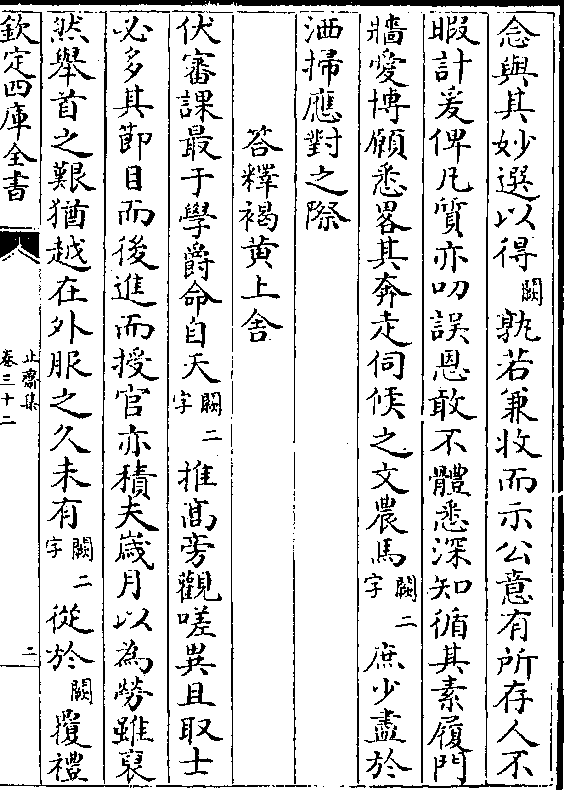 念與其妙選以得闕孰若兼收而示公意有所存人不
暇計爰俾凡質亦叨誤恩敢不體悉深知循其素履門
牆愛博願悉畧其奔走伺候之文農馬闕二字庶少盡於
洒掃應對之際
答釋褐黄上舍
伏審課最于學爵命自天闕二字推髙旁觀嗟異且取士
必多其節目而後進而授官亦積夫嵗月以為勞雖裒
然舉首之艱猶越在外服之久未有闕二字從於闕擾禮
欽定四庫全書
止齋集
卷三十二
二